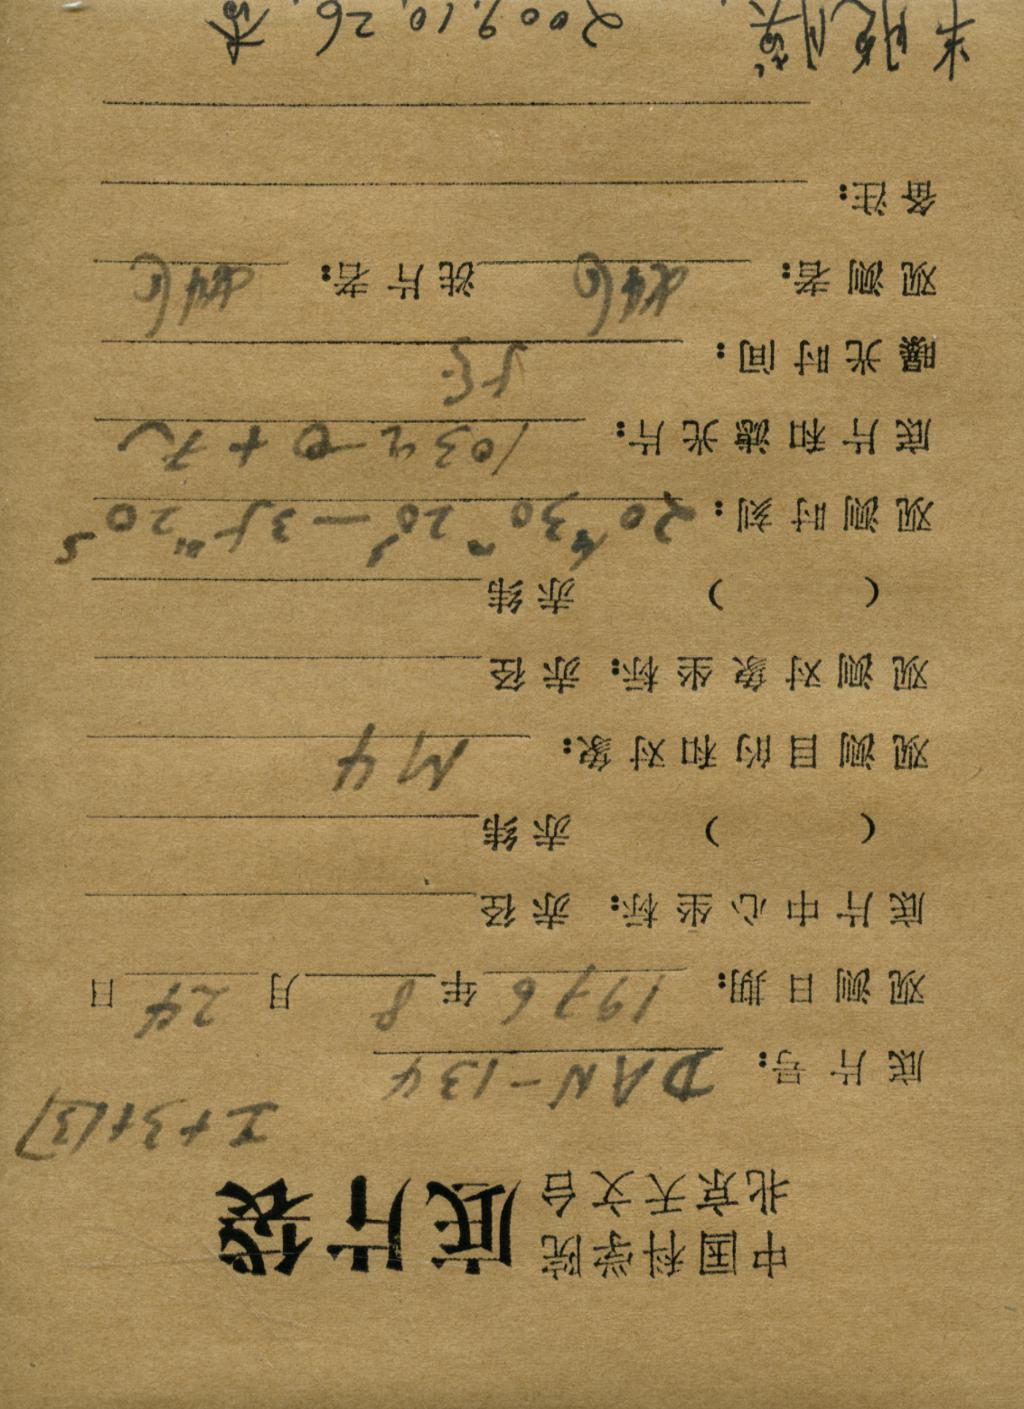 中国科学院
北京天文台
底片袋
I+3+(3)
底片号: DAN-134
观测日期: 1976年8月24日
底片中心坐标: 赤径
( ) 赤纬
观测目的和对象: M4
观测对象坐标: 赤径
( ) 赤纬
观测时刻: 20h30m20s—35m20s
底片和滤光片: 103a-O+无
曝光时间: 5分
观测者: 洗片者:
备注:
2009.10.26.